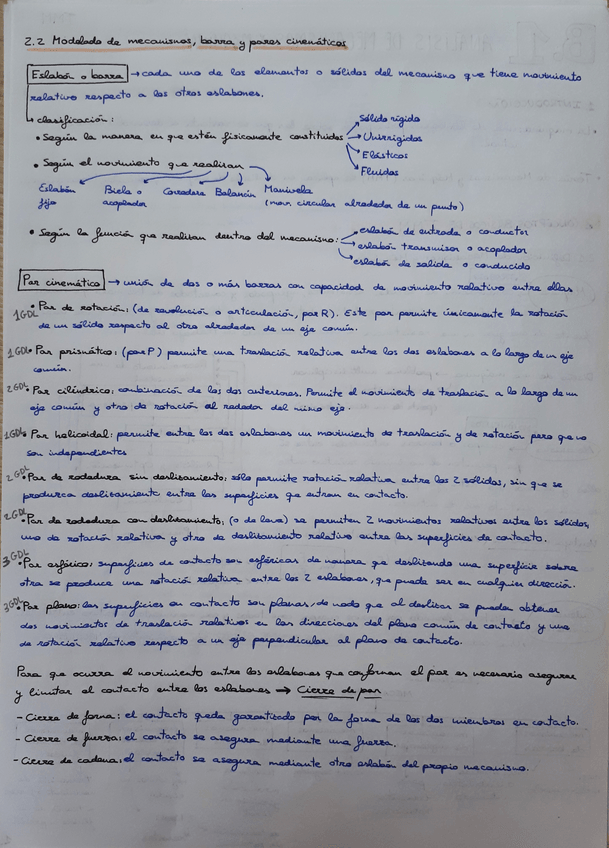 2.2 Modelado de mecanismos, barra y pares cinemáticos
Eslabón o barra → cada uno de los elementos o sólidos del mecanismo que tiene movimiento
relativo respecto a los otros eslabones.
clasificación:
• Según la manera en que estén físicamente constituidos
Sólido rígido
Unirrígidos
Elásticos
Fluidos
• Según el movimiento que realizan
Eslabón fijo
Biela o acoplador
Corredera
Balancín
Manivela
(mov. circular alrededor de un punto)
• Según la función que realiban dentro del mecanismo:
eslabón de entrada o conductor
eslabón transmisor o acoplador
eslabón de salida o conducido
Par cinemático → unión de dos o más barras con capacidad de movimiento relativo entre ellas
1GDL • Par de rotación: (de revolución o articulación, par R). Este par permite únicamente la rotación
de un sólido respecto al otro alrededor de un eje común.
1GDL • Par prismático: (par P) permite una traslación relativa entre los dos eslabones a lo largo de un eje
común.
2GDL • Par cilíndrico: combinación de los dos anteriores. Permite el movimiento de traslación a lo largo de un
eje común y otro de rotación al rededor del mismo eje.
1GDL • Par helicoidal: permite entre los dos eslabones un movimiento de traslación y de rotación pero que no
son independientes
2GDL • Par de rodadura sin deslizamiento: sólo permite rotación relativa entre los 2 sólidos, sin que se
produzca deslizamiento entre las superficies que entran en contacto.
2GDL • Par de rodadura con deslizamiento: (o de leva) se permiten 2 movimientos relativos entre los sólidos,
uno de rotación relativa y otro de deslizamiento relativo entre las superficies de contacto.
3GDL • Par esférico: superficies de contacto son esféricas de manera que deslizando una superficie sobre
otra se produce una rotación relativa entre los 2 eslabones, que puede ser en cualquier dirección.
3GDL • Par plano: las superficies en contacto son planas, de modo que al deslizar se pueden obtener
dos movimientos de traslación relativos en las direcciones del plano común de contacto y una
de rotación relativo respecto a un eje perpendicular al plano de contacto.
Para que ocurra el movimiento entre los eslabones que conforman el par es necesario asegurar
y limitar el contacto entre los eslabones → Cierre de par
- Cierre de forma: el contacto queda garantizado por la forma de los dos miembros en contacto.
- Cierre de fuerza: el contacto se asegura mediante una fuerza.
- Cierre de cadena: el contacto se asegura mediante otro eslabón del propio mecanismo.